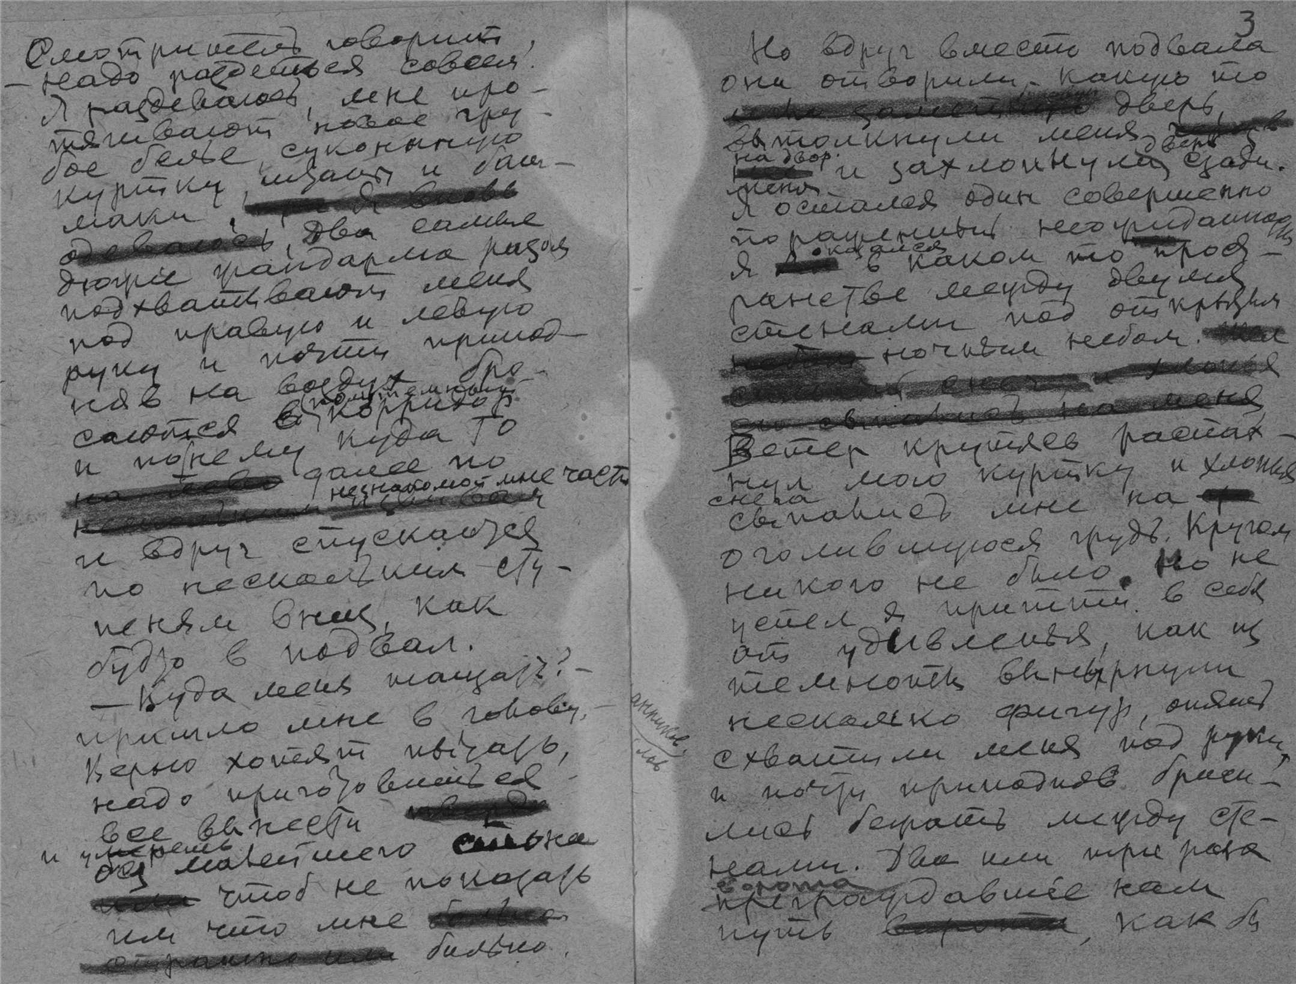 Смотритель говорит,
— надо раздеться совсем.
Я раздеваюсь, мне про-
тягивают новое гру-
бое белье, суконную
куртку, штаны и баш-
маки.
одеваюсь, Два самые
дюжие жандарма разом
подхватывают меня
под правую и левую
руку и почти припод-
няв на воздух бро-
саются в (полутемный)
корридор
и по нему куда то
далее по
незнакомой мне части
и вдруг спускаются
по нескольким сту-
пеням вниз, как
будто в подвал.
— Куда меня тащат? —
пришло мне в голову, —
Верно хотят пытать,
надо приготовиться
все вынести
и умереть
без малейшего стона
чтоб не показать
им что мне
больно.
3
Но вдруг вместо подвала
они отворили какую то
дверь,
вытолкнули меня
на двор и захлопнули дверь сзади
меня.
Я остался один совершенно
пораженный неожиданностью
Я оказался в каком то прост-
ранстве между двумя
стенами под открытым
ночным небом.
сыпались на меня
Ветер крутясь распах-
нул мою куртку и хлопья
снега
сыпались мне на
оголившуюся грудь. Кругом
никого не было. Но не
успел я притти в себя
от удивленья, как из
темноты вынырнули
несколько фигур, опять
схватили меня под руки,
и почти приподняв броси-
лись бежать между сте-
нами. Два или три раза
ворота
преграждавшие нам
путь, как бы